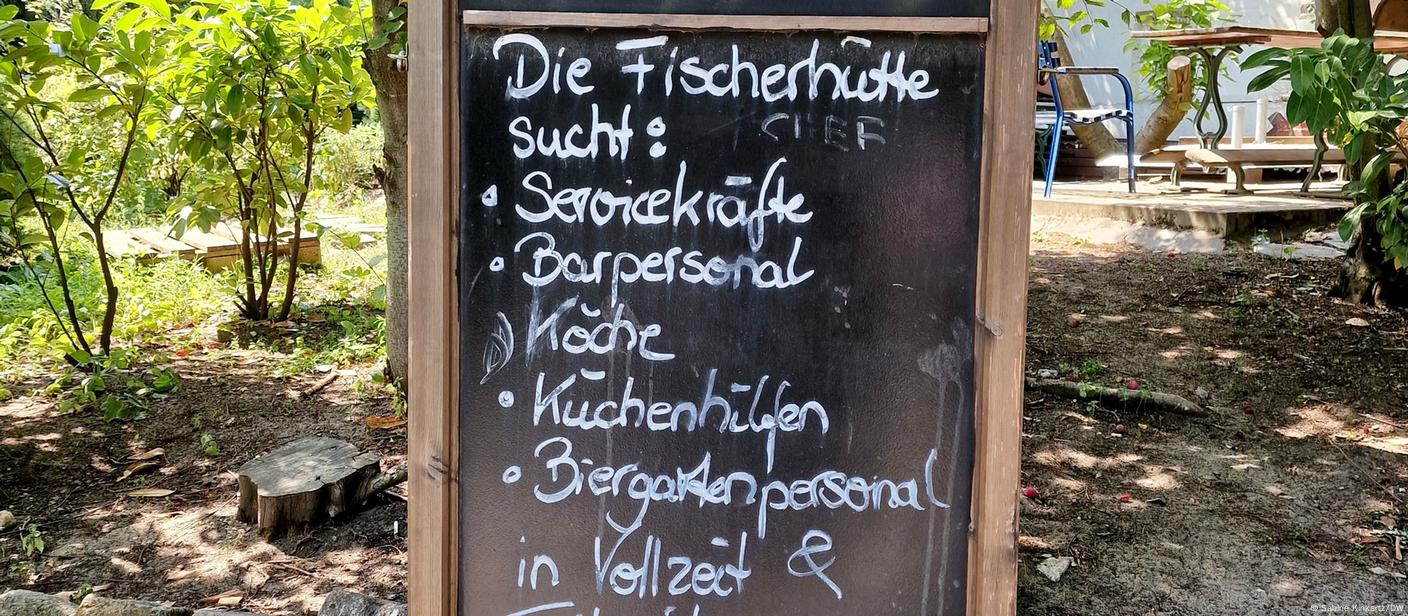 Die Fischerhütte
sucht:
CHEF
• Servicekräfte
• Barpersonal
Köche
• Küchenhilfen
• Biergartenpersonal
in Vollzeit &
© Sabine Kinkartz/DW